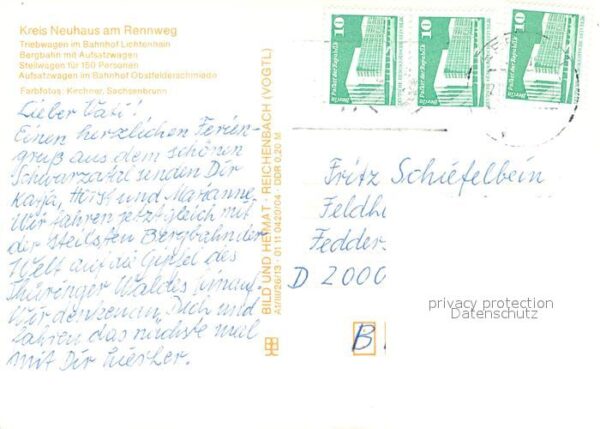 Kreis Neuhaus am Rennweg
Triebwagen im Bahnhof Lichtenhain
Bergbahn mit Aufsatzwagen
Stellwagen für 150 Personen
Aufsatzwagen im Bahnhof Obstfelderschmiede
Farbfotos: Kirchner, Sachsenbrunn
Lieber Vati!
Einen herzlichen Ferien-
gruß aus dem schönen
Schwarzatal senden Dir
Katja, Horst und Marianne.
Wir fahren jetzt gleich mit
der steilsten Bergbahn der
Welt auf die Gipfel des
Thüringer Waldes hinauf.
Wir denken an Dich und
fahren das nächste mal
mit Dir hierher.
BILD UND HEIMAT · REICHENBACH (VOGTL)
A1/III/26/13 · 01 11 0420/04 · DDR 0,20 M
10
Palast der Republik
Berlin
10
Palast der Republik
Berlin
10
Palast der Republik
Berlin
Fritz Schiefelbein
Feldh
Fedder
D 2000
B
privacy protection
Datenschutz